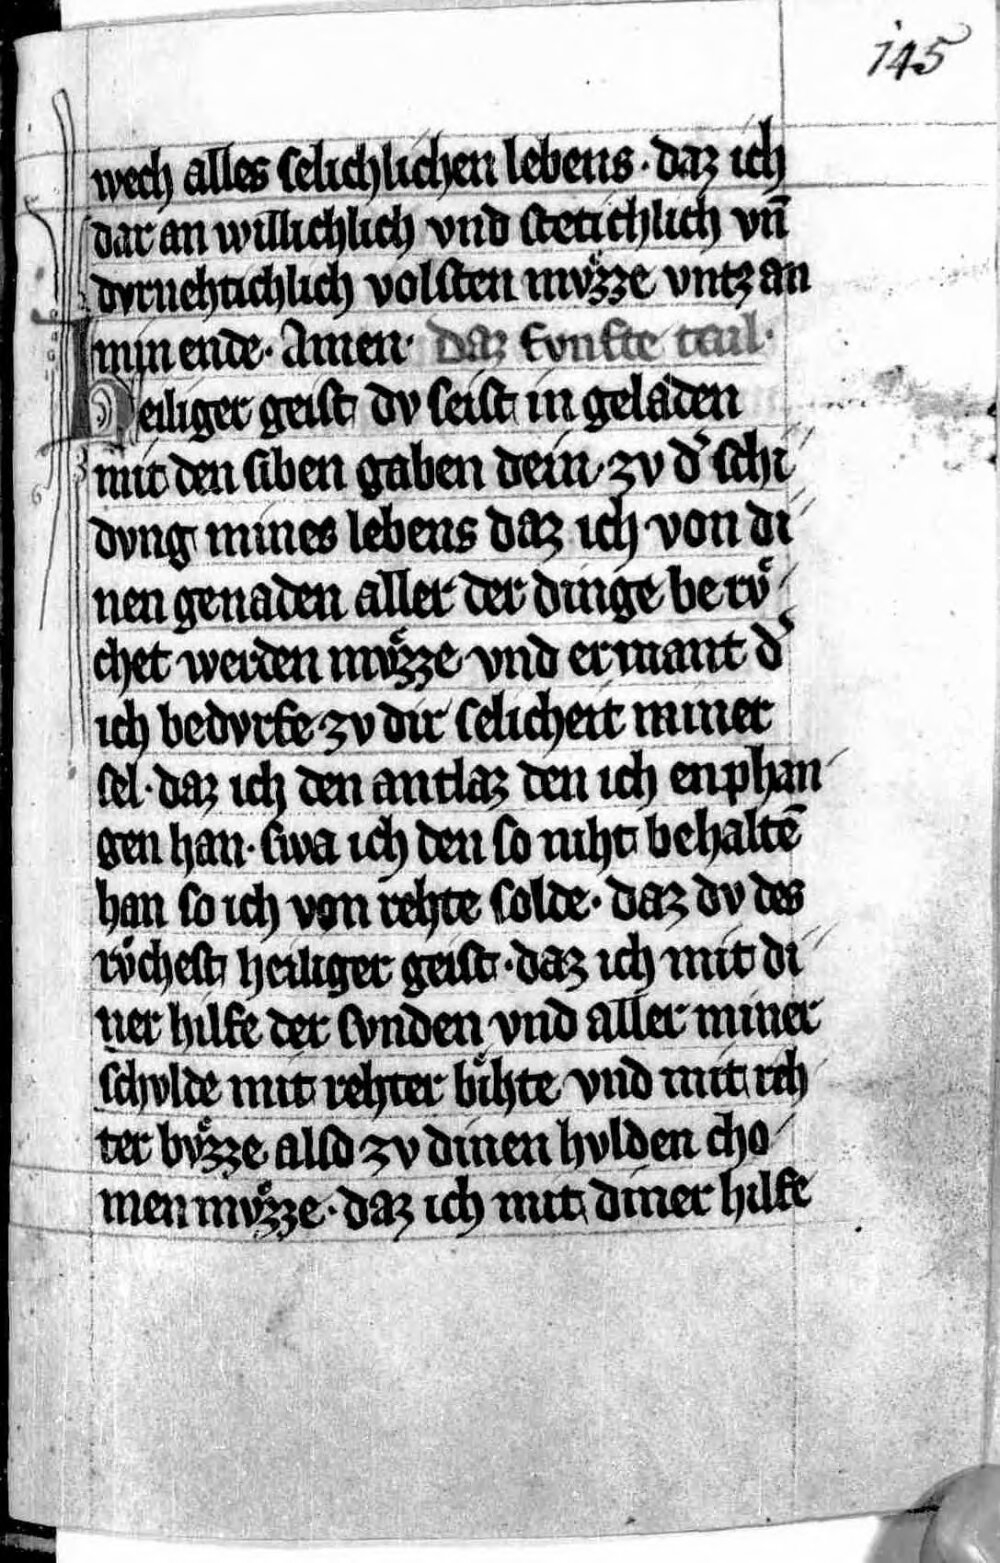 145
wech alles selichlichen lebens · daz ich
dar an willichlich vnd stetichlich vn̄
dvrnehtichlich volsten mvͤzze vntz an
min ende · Amen · Daz fvnfte teil ·
Heiliger geist dv seist in geladen
mit den siben gaben dein · zv d͛ schi
dvng mines lebens daz ich von di
nen genaden aller der dinge be rvͦ
chet werden mvͤzze vnd ermant d͛
ich bedvrfe · zv dir selicheit miner
sel · daz ich den antlaz den ich enphan
gen han · swa ich den so niht behaltē
han so ich von rehte solde · daz dv des
rvͦchest heiliger geist · daz ich mit di
ner hilfe der svnden vnd aller miner
schvlde mit rehter bihte vnd mit reh
ter bvͤzze also zv dinen hvlden cho
men mvͤzze · daz ich mit diner hilfe